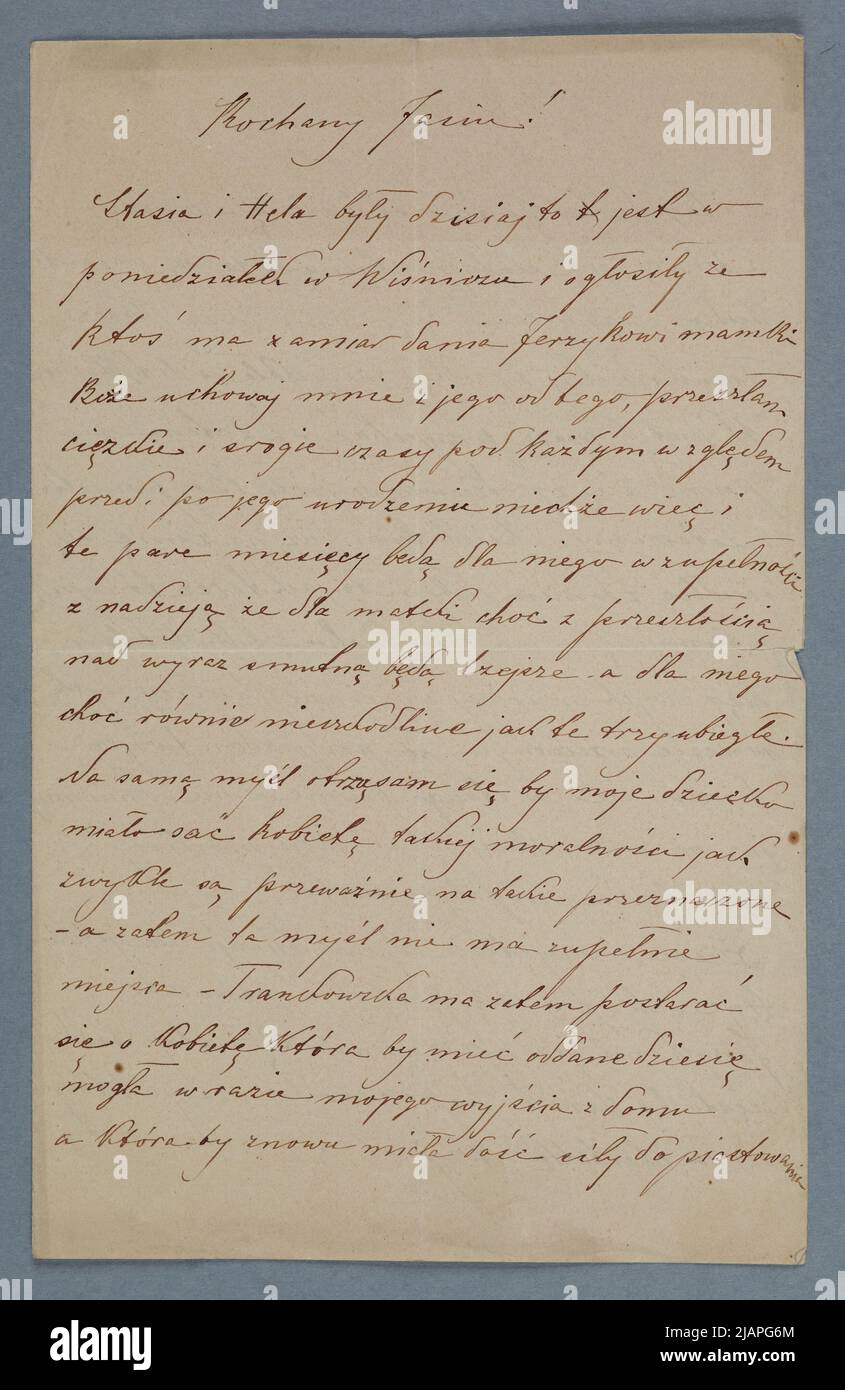 Kochany Jasiu!
Stasia i Hela były dzisiaj to t jest w
poniedziałek w Wiśniczu i ogłosiły ze
Ktoś ma zamiar dania Jerzykowi mamki
Boże uchowaj mnie i jego od tego, przeszłam
cięzkie i srogie czasy pod każdym względem
przed i po jego urodzeniu niechże więc i
te pare miesięcy będą dla niego w zupełności
z nadzieją że dla matki choć z przeszłością
nad wyraz smutną będą lzejsze a dla niego
choć równie nieszkodliwe jak te trzy ubiegłe.
Na samą myśl otrząsam się by moje dziecko
miało ssać kobietę takiej moralności jak
zwykle są przeważnie na takie przeznaczone
- a zatem ta myśl nie ma zupełnie
miejsca - ma zatem postarać
się o Kobietę Która by mieć oddane dziecię
mogła w razie mojego wyjścia z domu
a Która by znowu miała dość siły do piastowania
alamy
Image ID: 2JAPG6M
www.alamy.com